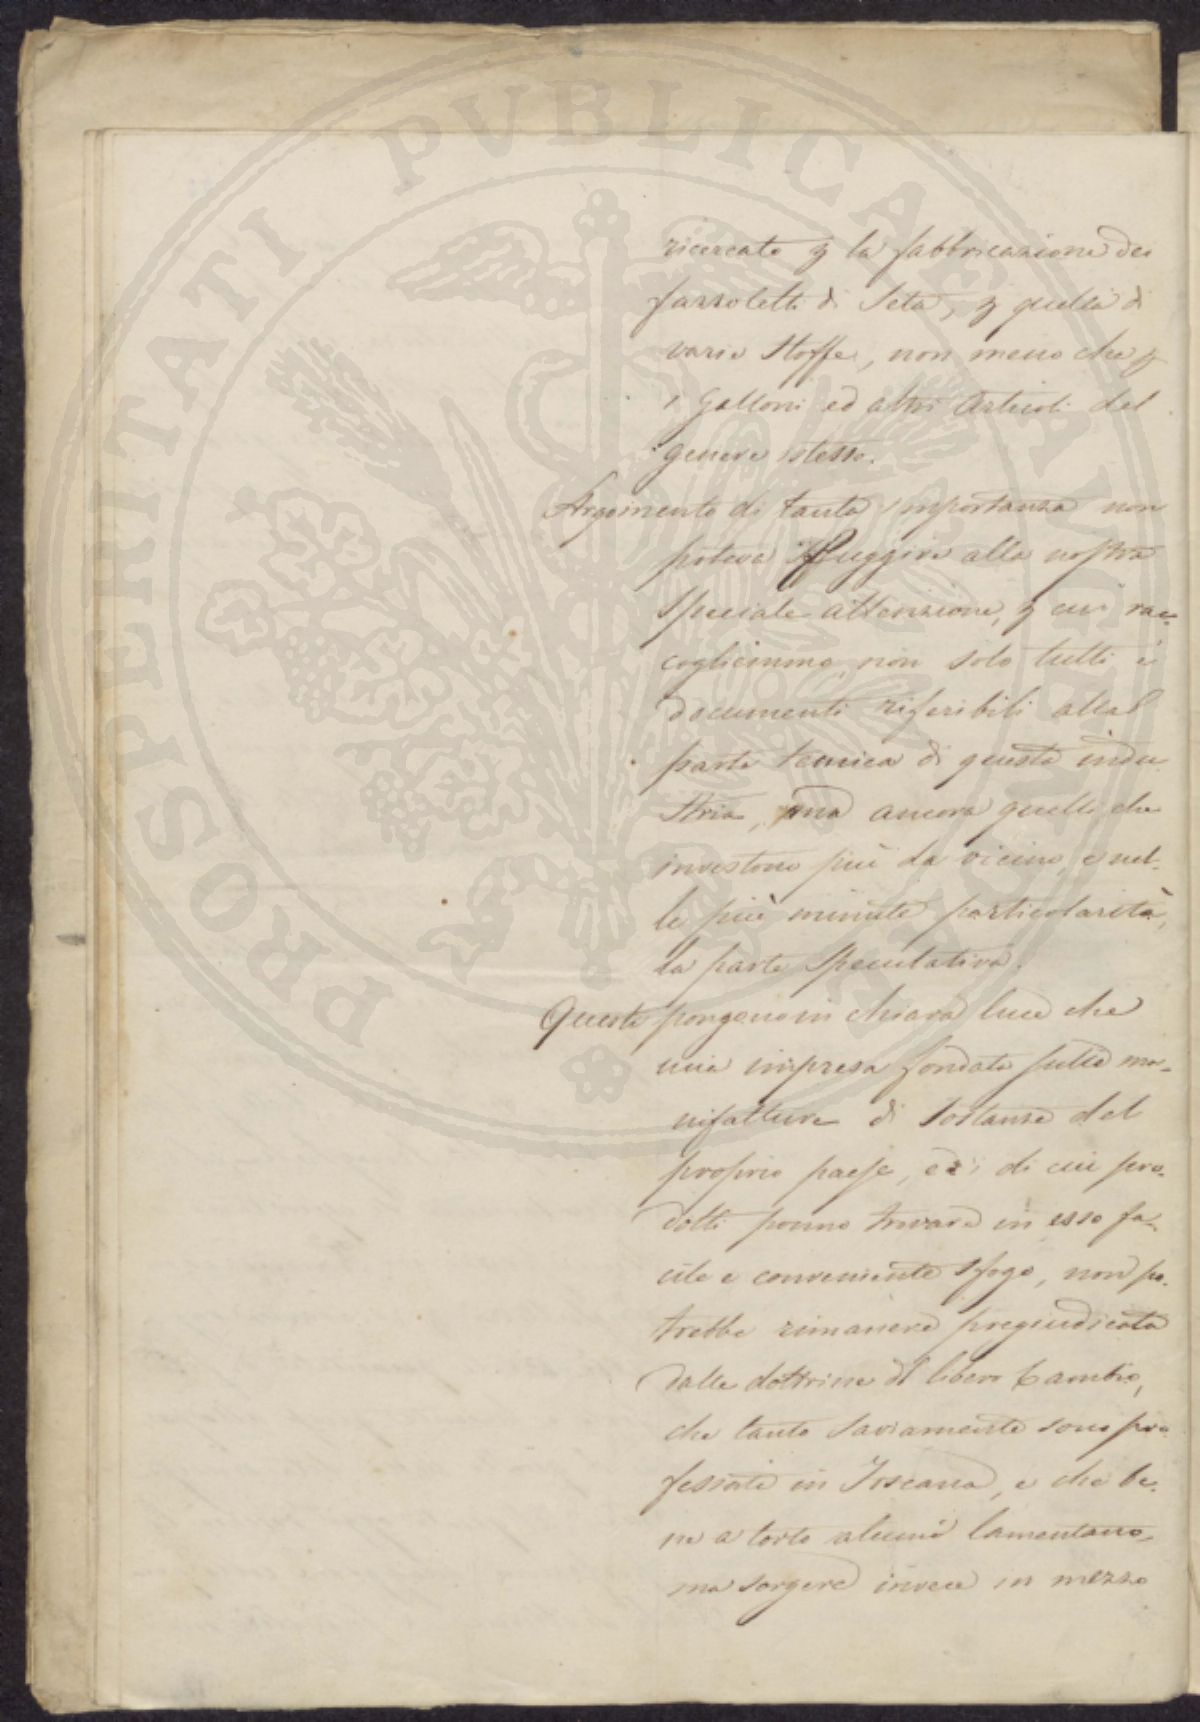 PROSPERITATI PVBLICAE AVGENDAE
ricercate p la fabbricazione dei
fazzoletti di Seta, p quella di
varie Stoffe, non meno che p
i Galloni ed altri Articoli del
genere stesso.
Argomento di tanta importanza non
poteva sfuggire alla nostra
speciale attenzione, p cui rac-
cogliemmo non solo tutti i
documenti riferibili alla
parte tecnica di questa indu
stria, ma ancora quelli che
investono più da vicino, e nel-
le più minute particolarità,
la parte speculativa.
Questi pongono in chiara luce che
una impresa fondata sulle ma-
nifatture di sostanze del
proprio paese, ed i di cui pro-
dotti ponno trovare in esso fa-
cile e conveniente sfogo, non po-
trebbe rimanere pregiudicata
dalle dottrine di libero Cambio,
che tanto saviamente sono pro
fessate in Toscana, e che be-
ne a torto alcuni lamentano,
ma sorgere invece in mezzo